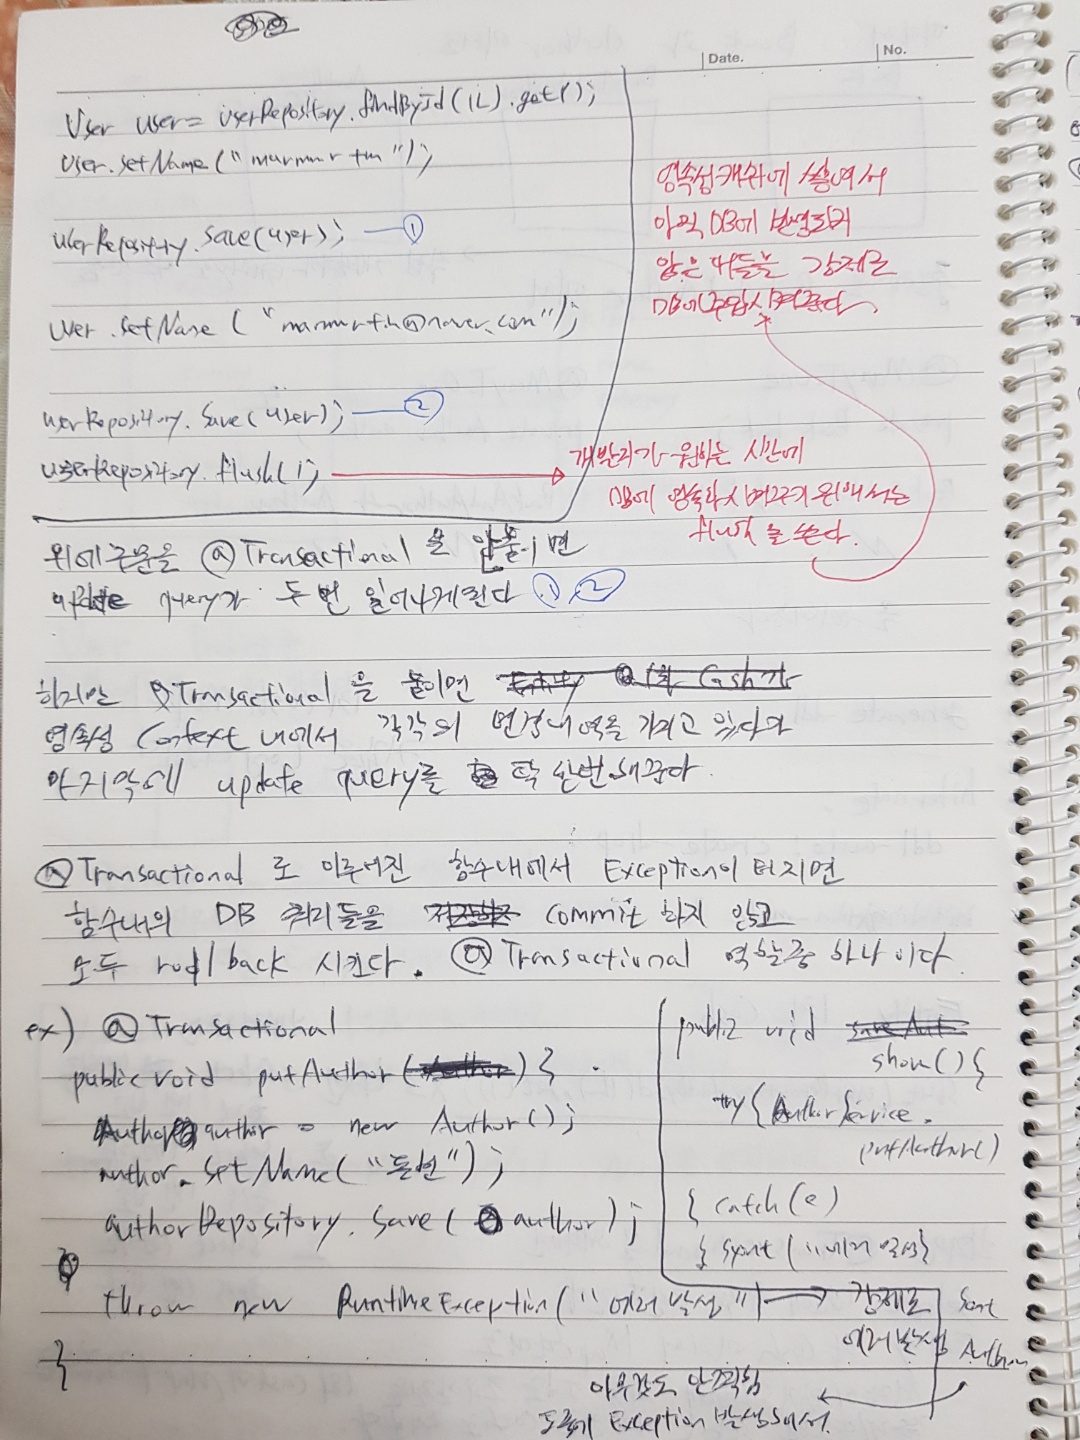 Date.
No.
User user = userRepository.findById(1L).get();
user.setName("murmurtm");
userRepository.save(user); ①
user.setName("marmurtm@naver.com");
userRepository.save(user); ②
userRepository.flush();
영속성캐쉬에 쌓여서
아직 DB에 반영되지
않은 애들을 강제로
DB에 주입시켜준다.
개발자가 원하는 시간에
DB에 영속화시켜주기 위해서는
flush를 쓴다.
위에구문을 @Transactional 을 안붙이면
update query가 두번 일어나게된다 ① ②
하지만 @Transactional 을 붙이면
영속성 Context 내에서 각각의 변경내역을 가지고 있다가
마지막에 update query를 딱 한번해준다.
@Transactional 로 이루어진 함수내에서 Exception이 터지면
함수내의 DB 쿼리들을 commit 하지 않고
모두 roll back 시킨다. @Transactional 역할중 하나이다.
ex) @Transactional
public void putAuthor() {
Author author = new Author();
author.setName("돈변");
authorRepository.save(author);
throw new RuntimeException("에러발생") → 강제로
에러발생
}
public void
show() {
try { AuthorService.
putAuthor()
} catch(e)
{ sout ("에러 발생}
Author
아무것도 안찍힘
도중에 Exception 발생해서.